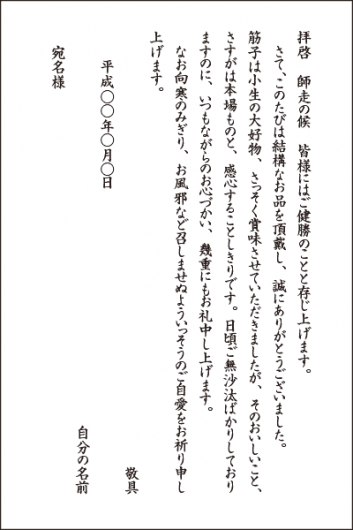 拝啓　師走の候　皆様にはご健勝のことと存じ上げます。
さて、このたびは結構なお品を頂戴し、誠にありがとうございました。
筋子は小生の大好物、さっそく賞味させていただきましたが、そのおいしいこと、
さすがは本場ものと、感心することしきりです。日頃ご無沙汰ばかりしており
ますのに、いつもながらのお心づかい、幾重にもお礼申し上げます。
なお向寒のみぎり、お風邪など召しませぬよういっそうのご自愛をお祈り申し
上げます。
敬具
平成〇〇年〇月〇日
自分の名前
宛名様